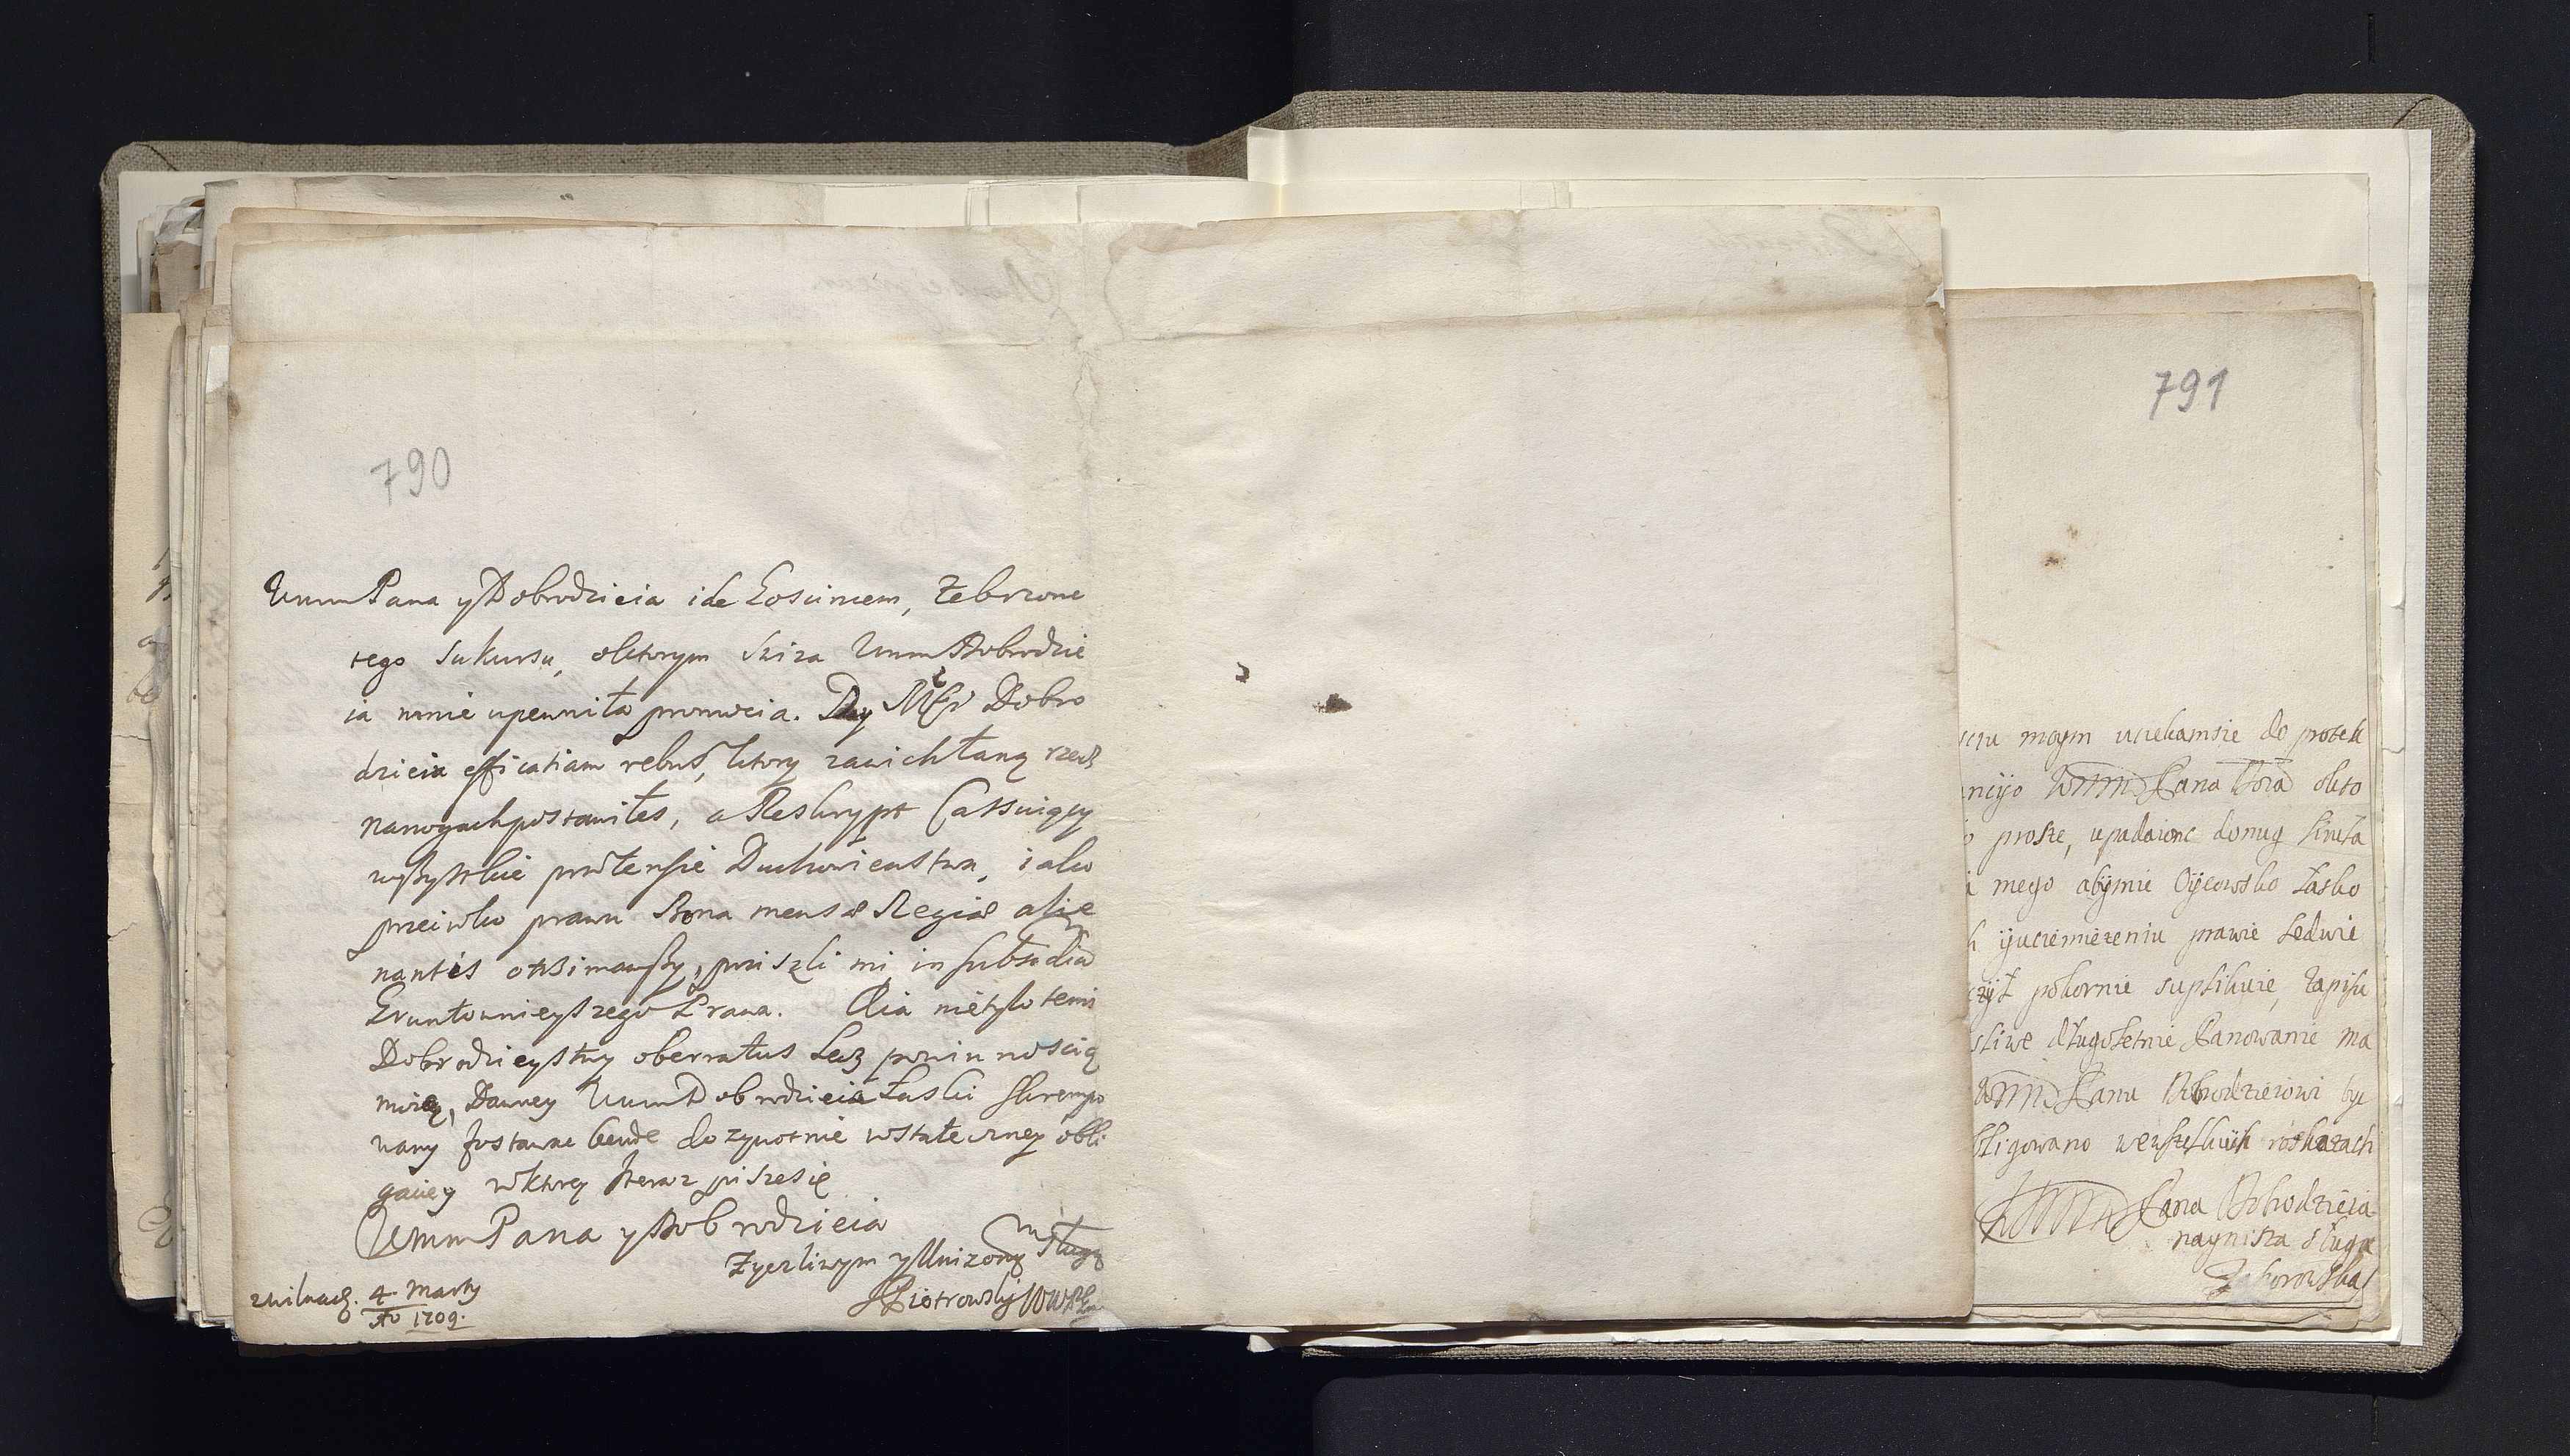 790
Wmm Pana y Dobrodzieia ide Goscincem, zebrzone
tego sukursu, oktorym swiza Wmm Dobrodzie
ia mnie upewniła promocia. Day Mći Dobro
dzieia efficatiam rebus, ktory zawichłaną rzecz
nanogach postawiłes, a Reskrypt Cassuiący
wszystkie praetensie Duchowienstwa, iako
przeiwko prawu Bona mensae Regiae alie
nantis otrzimawszy, przisęli mi in subsidia
Gruntownieyszego Prawa. A ia nietylo temi
Dobrodzieystwy obernatus Lecz powinnoscią
moię, Dawney Wmm Dobrodzieia Łaski skrempo
wany zostawac bende dozywotnie wstateczney obli
gaciey wktorey teraz piszesię
Wmm Pana y Dobrodzieia
Zyczliwym y Unizonym Sługą
Piotrowski
4 Marty
Ao 1709.
791
sciu moym uciekamsie do protek
ncijo WMM Pana Dbra okto
prosze, upadaionc domug
mego abymie Oijcowsko Łasko
ijuciemiezeniu prawie Ledwie
pokornie suplikuie, zapisu
sliwe długoletnie Panowanie ma
WMM Panu Dobrodzieiowi byc
bligowano wewszelkiih roskazach
WMM Pana Dobrodzieia
naynisza sługa